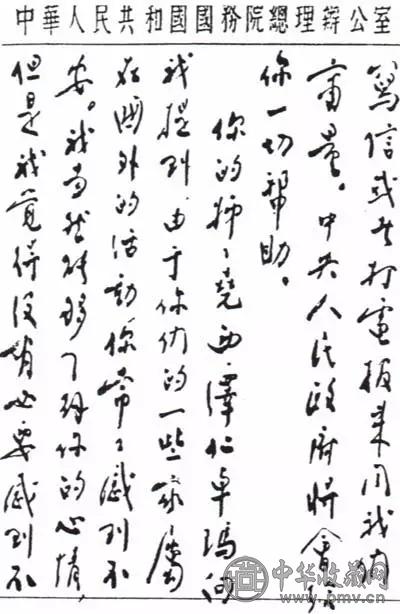 中華人民共和國國務院總理辦公室
寫信或者打電报来同我们
商量。中央人民政府将會给
你一切帮助。
你的姊〻堯西·澤仁卓瑪向
我提到，由于你们的一些家屬
在國外的活動你常〻感到不
安。我当然能够了解你的心情，
但是我覺得没有必要感到不
中华收藏网
www.pmv.cn